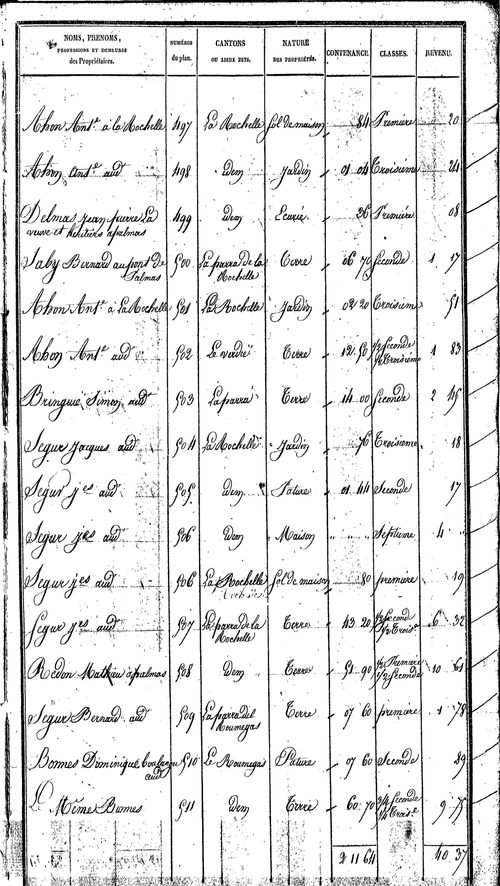 NOMS, PRENOMS, PROFESSIONS ET DEMEURES des Propriétaires. NUMÉROS du plan. CANTONS OU LIEUX DITS. NATURE DES PROPRIÉTÉS. CONTENANCE CLASSES. REVENU.
Ahon Ant.e à la Rochelle 497 La Rochelle Sol de maison " 84 Première " 20
Ahon Ant.e aud 498 idem Jardin " 01 04 Troisieme " 24
Delmas jean pierre La veuve et héritiers apalmas 499 idem Ecurie " 36 Première " 08
Saby Bernard au pont de Palmas 500 La parra de la Rochelle Terre " 06 70 Seconde 1 17
Ahon Ant.e à La Rochelle 501 La Rochelle Jardin " 02 20 Troisieme " 51
Ahon Ant.e aud 502 La verdié Terre " 12 50 1/2 Seconde 1/2 Troisieme 1 83
Bringué Simon aud 503 La parra Terre " 14 00 Seconde 2 45
Segur Jacques aud 504 La Rochelle Jardin " 76 Troisieme " 18
Segur jes aud 505 idem Pature " 01 44 Seconde " 17
Segur jes aud 506 idem Maison " " " Septieme 4 "
Segur jes aud 506 La Rochelle Sol de maison " 80 première " 19
Segur jes aud 507 La parra de la Rochelle Terre " 43 20 1/2 Second 1/2 Trois.e 6 32
Redon Mathieu à palmas 508 idem Terre " 51 90 1/2 Premiere 1/2 Seconde 10 61
Segur Bernard aud 509 La parra del Roumegas Terre " 07 60 première 1 78
Bonnes Dominique aud 510 Le Roumegas Pature " 07 60 Seconde " 89
Le Même Bonnes 511 idem Terre " 60 70 3/4 Seconde 1/4 Trois.e 9 75
2 11 64 40 37